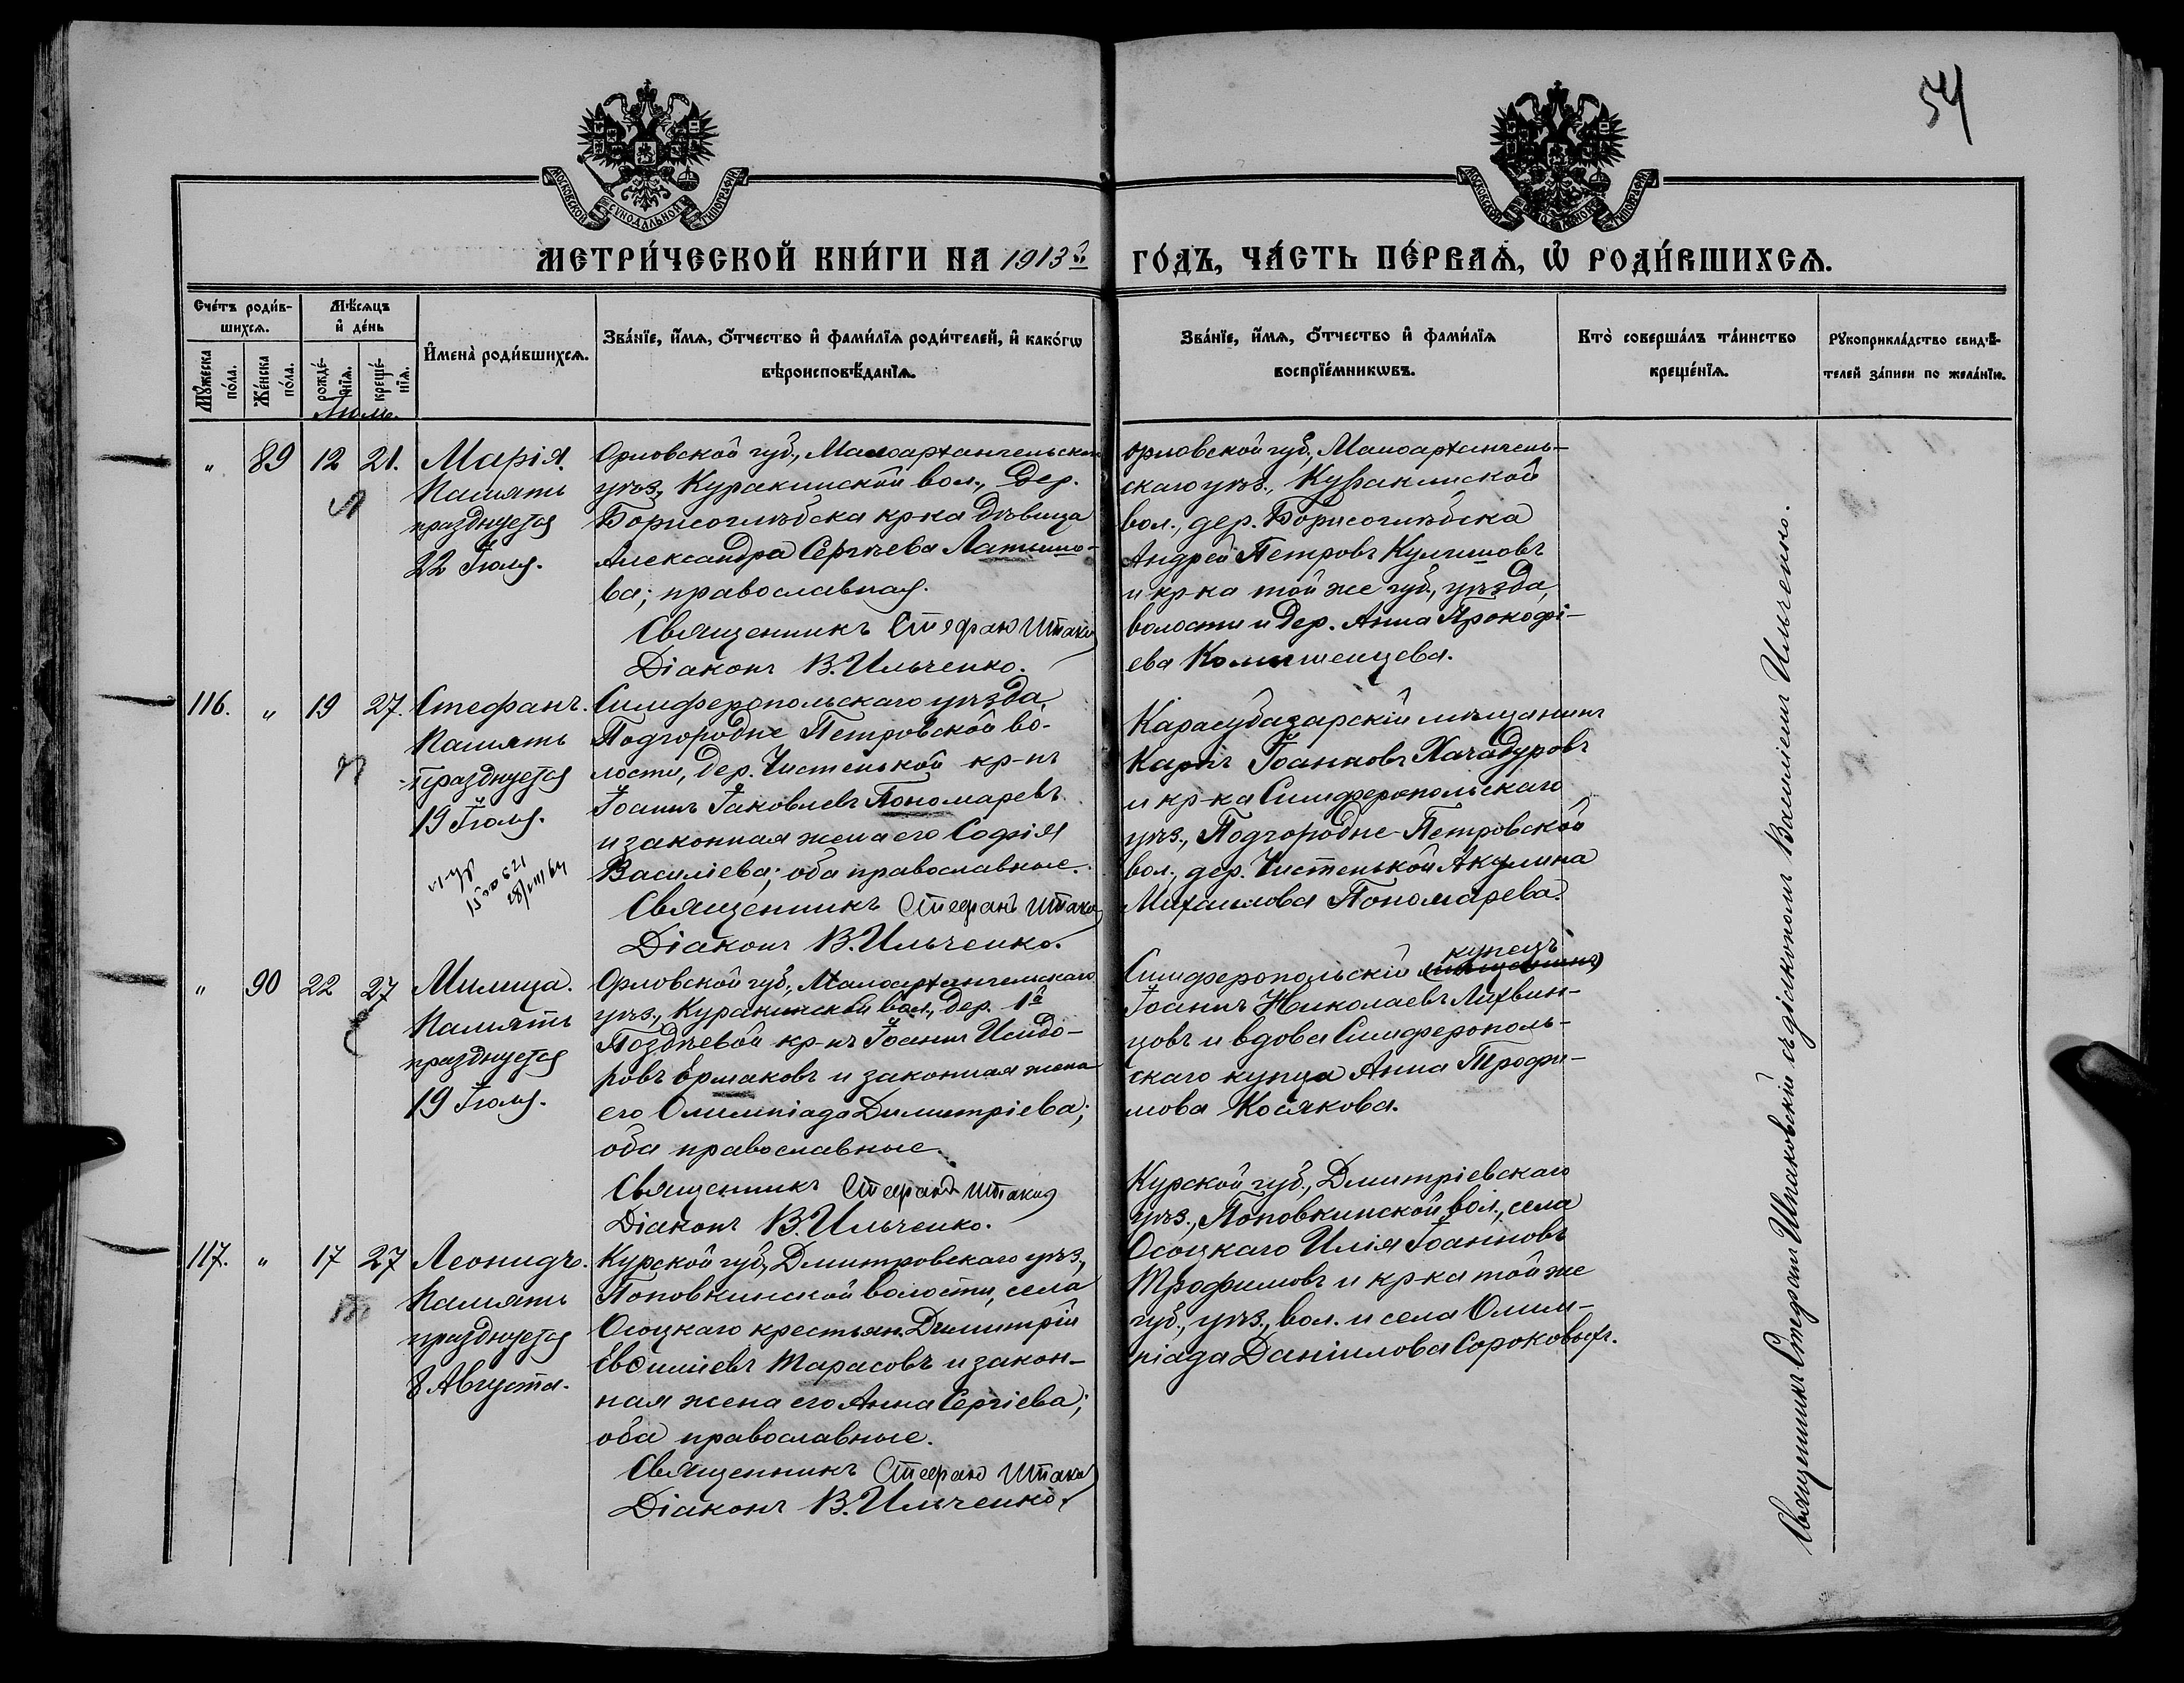 54
МОСКОВСКОЙ СУНОДАЛЬНОЙ ТИПОГРАФІИ
МОСКОВСКОЙ СУНОДАЛЬНОЙ ТИПОГРАФІИ
МЕТРИ́ЧЕСКОЙ КНИ́ГИ НА 1913й ГО́ДЪ, ЧА́СТЬ ПЕ́РВАѦ, Ѡ҆ РОДИ́ВШИХСѦ.
Сче́тъ роди́в-
шихсѧ.
Мꙋ́жеска по́ла.
Же́нска по́ла.
Мѣ́сѧцъ
и҆ де́нь
рожде́-
нїѧ.
креще́-
нїѧ.
Іюль.
И҆мена̀ роди́вшихсѧ.
Зва́нїе, и҆́мѧ, ѻ҆́тчество и҆ фами́лїѧ роди́телей, и҆ како́гѡ
вѣроисповѣ́данїѧ.
Зва́нїе, и҆́мѧ, ѻ҆́тчество и҆ фами́лїѧ
воспрїе́мникѡвъ.
Кто̀ соверша́лъ та́инство
креще́нїѧ.
Рꙋкоприкла́дство свидѣ́-
телей за́писи по жела́нїю.
„ 89 12 21. Марія.
Память
празднуется
22 Іюля.
Орловской губ., Малоархангельскаго
уѣз., Куракинской вол., дер.
Борисоглѣбска кр-ка дѣвица
Александра Сергѣева Латышо-
ва; православная.
Священникъ Стефанъ
Діаконъ В. Ильченко.
Орловской губ., Малоархангель-
скаго уѣз., Куракинской
вол., дер. Борисоглѣбска
Андрей Петровъ Кулишовъ
и кр-ка той же губ., уѣзда,
волости и дер. Анна Прокофі-
ева
116. „ 19 27. Стефанъ.
Память
празднуется
19 Іюля.
Симферопольскаго уѣзда,
Подгородне Петровской во-
лости, дер. Чистенькой кр-нъ
Іоаннъ Іаковлевъ Пономаревъ
и законная жена его Софія
Василіева; оба православные.
Священникъ Стефанъ
Діаконъ В. Ильченко.
Карасубазарскій мѣщанинъ
Карпъ Іоанновъ Хачадуровъ
и кр-ка Симферопольскаго
уѣз., Подгородне-Петровской
вол., дер. Чистенькой Акулина
Михаилова Пономарева.
„ 90 22 27 Милица.
Память
празднуется
19 Іюля.
Орловской губ., Малоархангельскаго
уѣз., Куракинской вол., дер. 1й
Поздѣевой кр-нъ Іоаннъ Исидо-
ровъ Ермаковъ и законная жена
его Олимпіада Димитріева;
оба православные.
Священникъ Стефанъ
Діаконъ В. Ильченко.
купецъ
Симферопольскій (мѣщанинъ)
Іоаннъ Николаевъ Лихвин-
цовъ и вдова Симферополь-
скаго купца Анна Трофи-
мова Косякова.
117. „ 17 27 Леонидъ.
Память
празднуется
8 Августа.
Курской губ., Дмитровскаго уѣз.,
Поповкинской волости, села
Осоцкаго крестьян. Димитрій
Евѳиміевъ Тарасовъ и закон-
ная жена его Анна Сергіева;
оба православные.
Священникъ Стефанъ
Діаконъ В. Ильченко.
Курской губ., Дмитріевскаго
уѣз., Поповкинской вол., села
Осоцкаго Илія Іоанновъ
Трофимовъ и кр-ка той же
губ., уѣз., вол. и села Олим-
піада Даніилова Сороковыхъ.
Священникъ Стефанъ Шпаковскій съ діакономъ Василіемъ Ильченко.